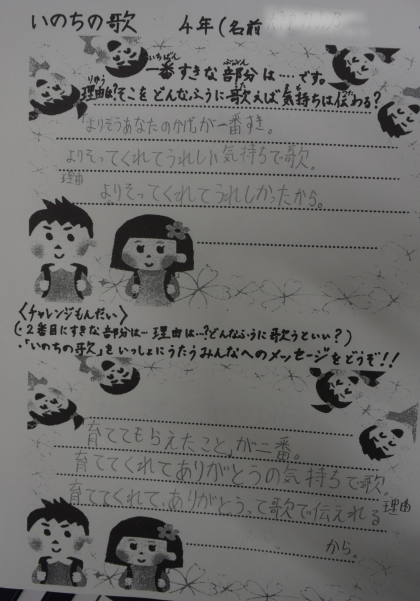 いのちの歌　4年(名前
一番すきな部分は…です。
いちばん ぶぶん
理由は?そこをどんなふうに歌えば気持ちは伝わる?
りゆう
よりそうあなたのかげが一番すき。
よりそってくれてうれしい気持ちで歌。
理由 よりそってくれてうれしかったから。
〈チャレンジもんだい〉
(・2番目にすきな部分は… 理由は…?どんなふうに歌うといい?)
・「いのちの歌」をいっしょにうたうみんなへのメッセージをどうぞ!!
育ててもらえたこと」が二番。
育ててくれてありがとうの気持ちで歌。
育ててくれて、ありがとうって歌で伝えれる 理由
から。